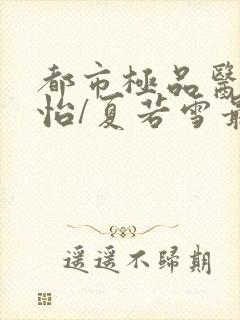 都市極品醫
怡/夏若雪最
遥遥不歸期